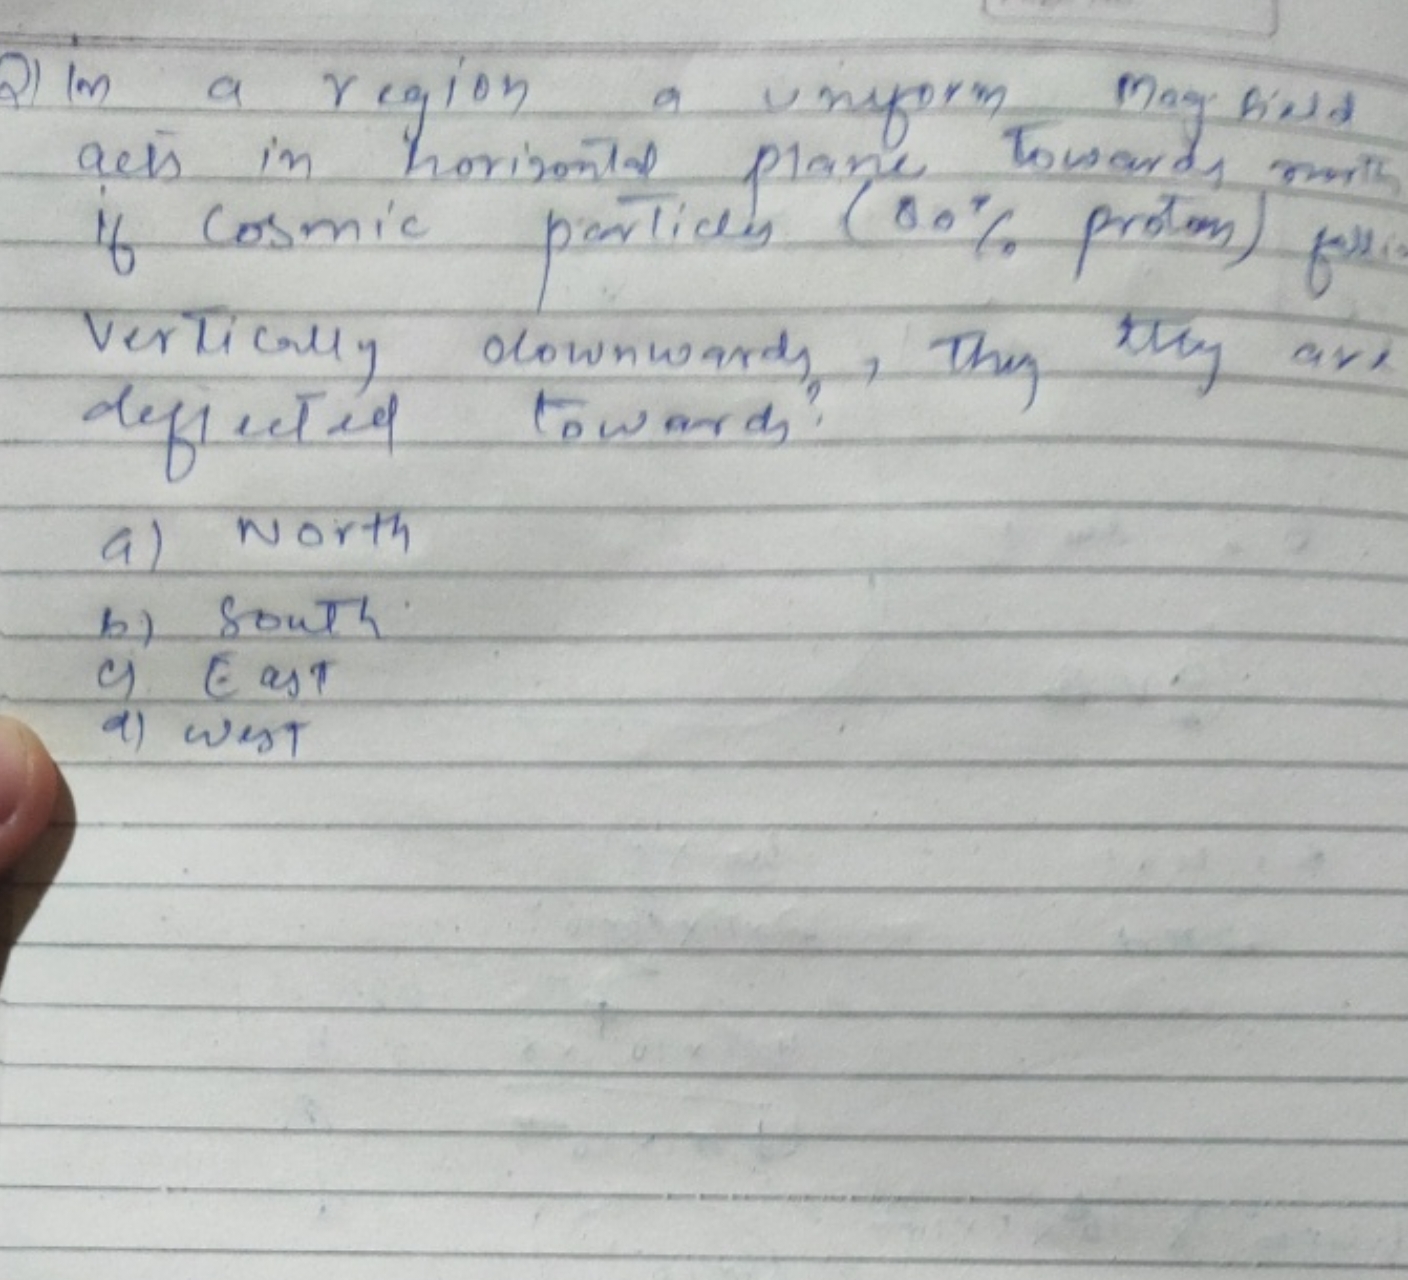 Q) In a region a uniform mag. field
acts in horizontal plane towards north
if cosmic particles (80% proton) falling
vertically downwards, they they are
deflected towards?
a) North
b) South
c) East
d) west